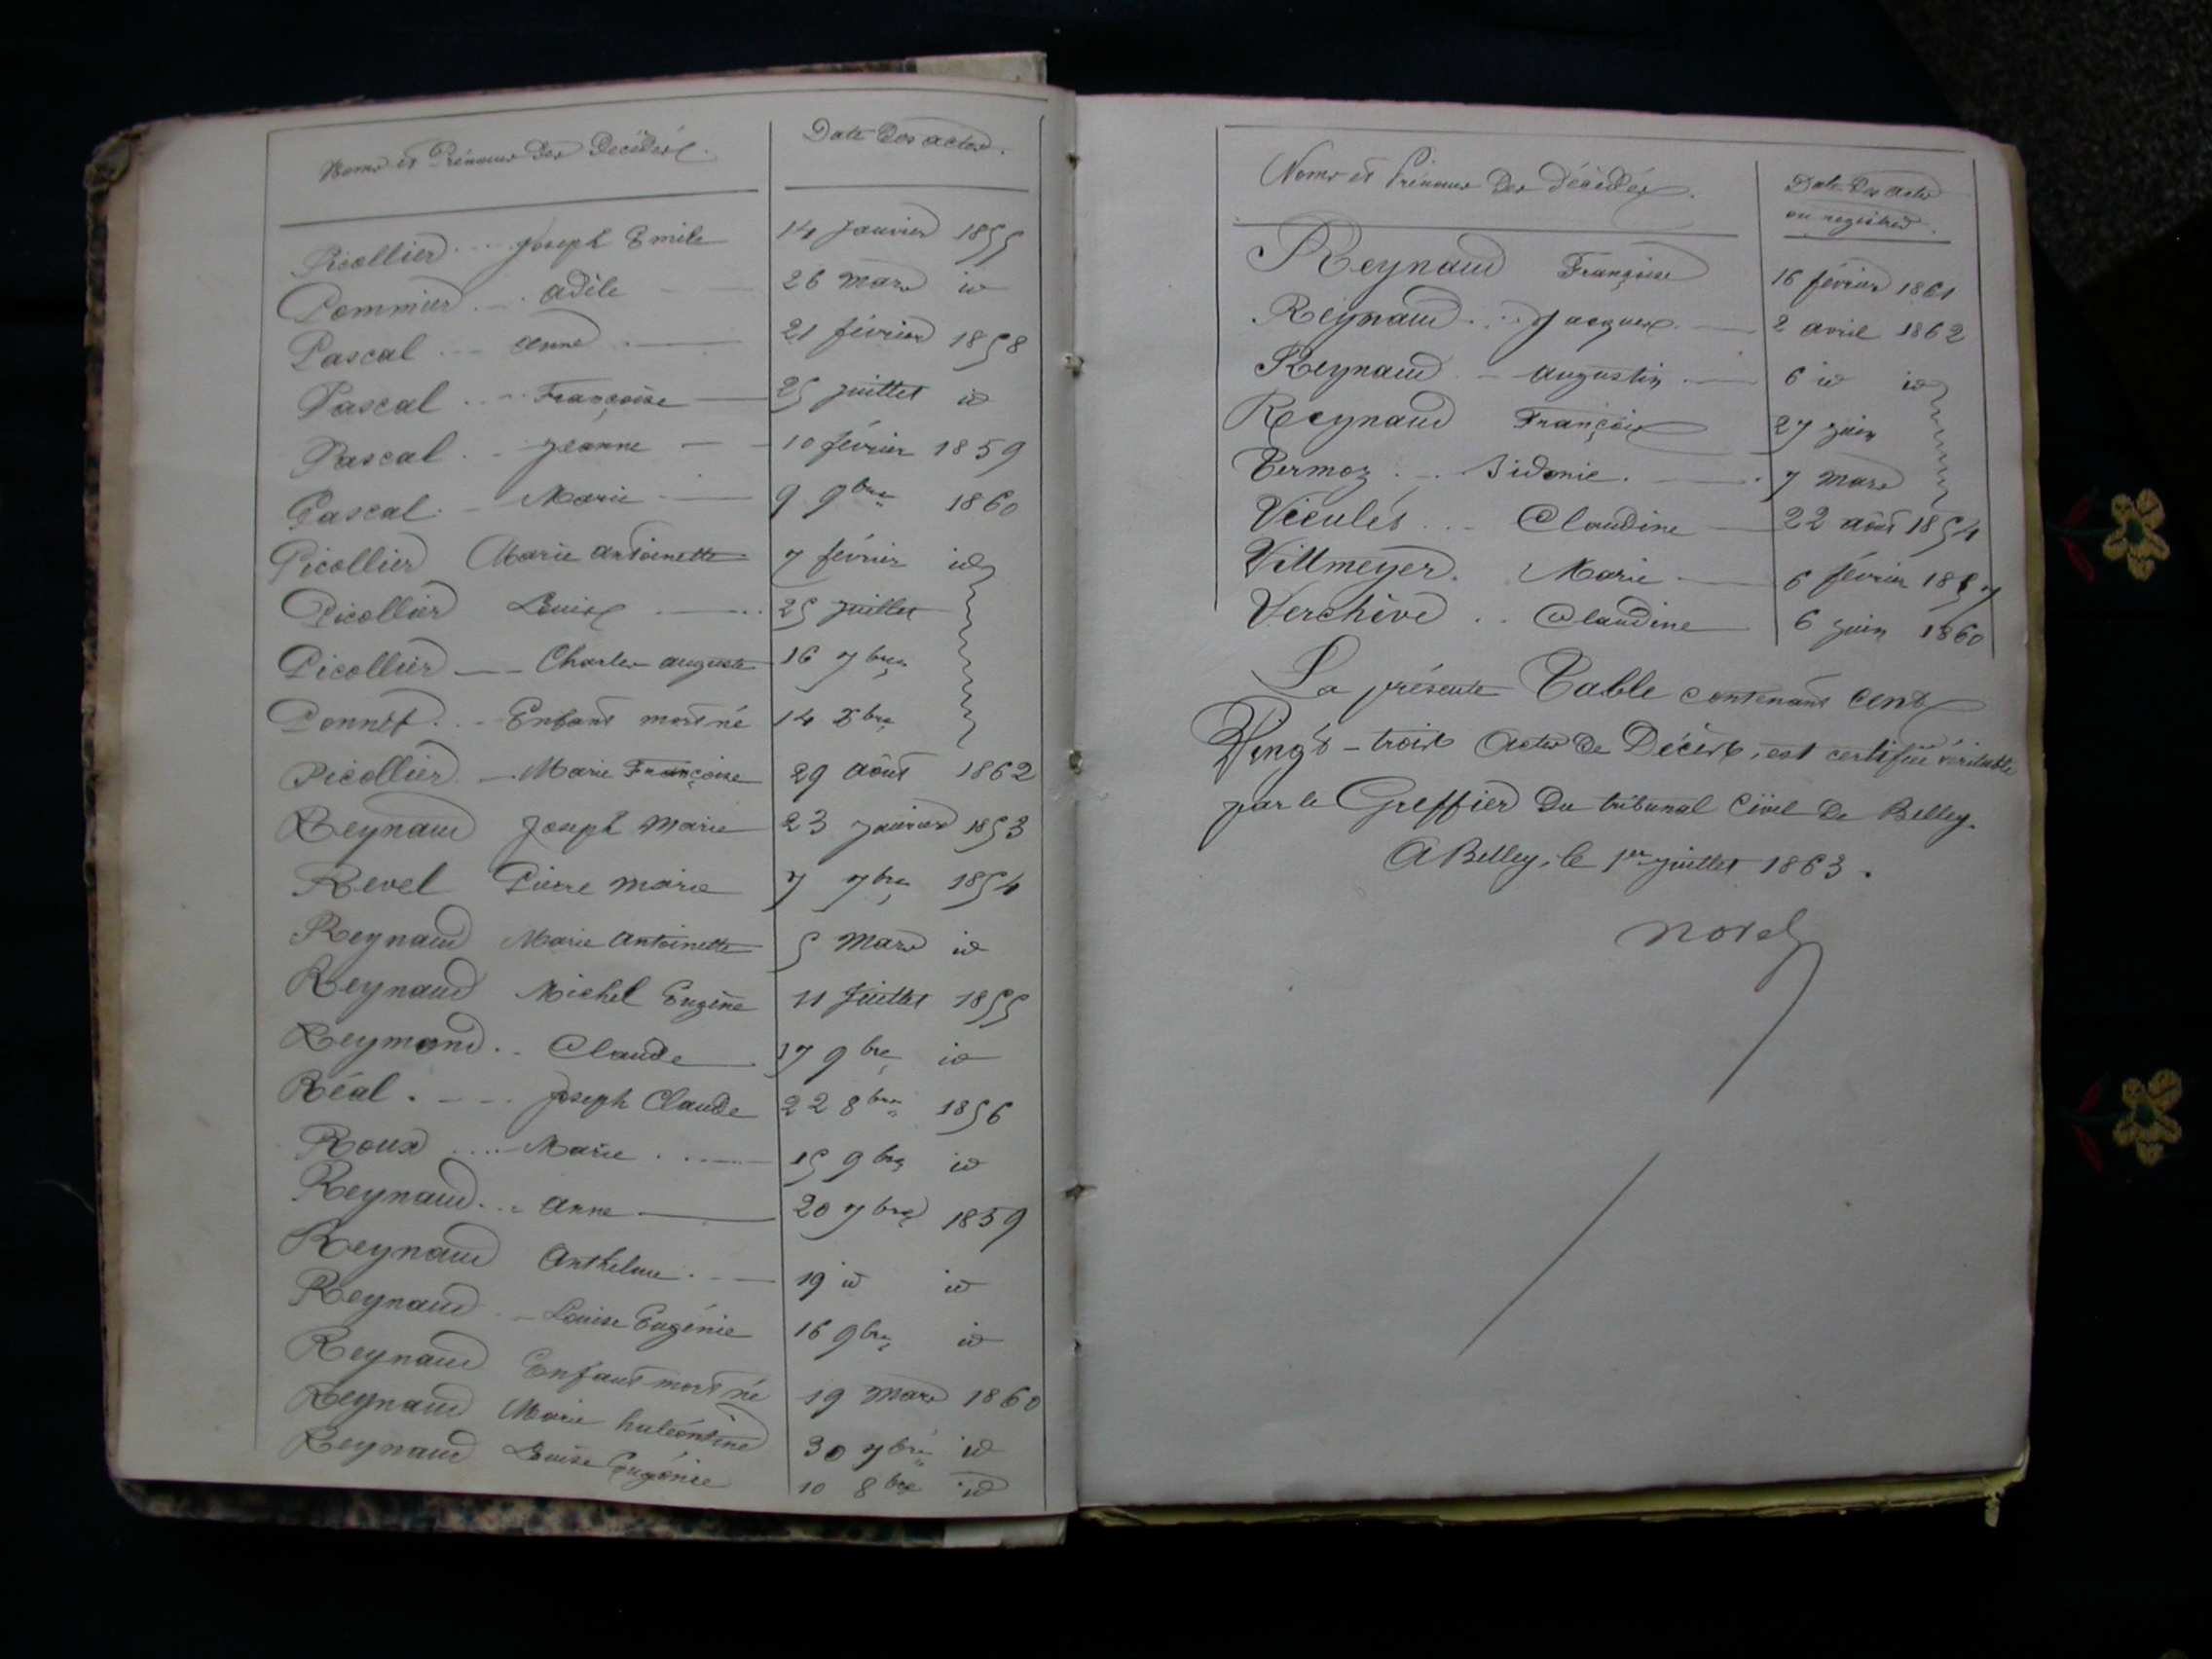 Noms et Prénoms des Décédés. Date des actes.
Picollier Joseph Emile 14 Janvier 1855
Pommier adèle 26 mars id
Pascal anne 21 février 1858
Pascal Françoise 25 juillet id
Pascal Jeanne 10 février 1859
Pascal Marie 9 9bre 1860
Picollier Marie antoinette 7 février id
Picollier Louise 25 juillet
Picollier Charles auguste 16 7bre
Ponnet Enfant mort né 14 Xbre
Picollier Marie Françoise 29 août 1862
Reynaud Joseph Marie 23 janvier 1853
Revel Pierre marie 7 7bre 1854
Reynaud Marie Antoinette 5 Mars id
Reynaud Michel Eugène 11 Juillet 1855
Reymond Claude 17 9bre id
Réal Joseph Claude 22 8bre 1856
Roux Marie 15 9bre id
Reynaud anne 20 7bre 1859
Reynaud Anthelme 19 id id
Reynaud Louise Eugénie 16 9bre id
Reynaud Enfant mort né 19 mars 1860
Reynaud Marie 30 7bre id
Reynaud Louise Eugénie 10 8bre id
Noms et Prénoms des décédés. Date des actes
ou registres.
Reynaud Françoise 16 février 1861
Reynaud Jacques 2 avril 1862
Reynaud augustin 6 id id
Reynaud François 27 juin
Termoz Sidonie 7 mars
Claudine 22 août 1854
Vittmeyer Marie 6 février 1857
Verchère Claudine 6 juin 1860
La présente Table contenant cent
Vingt-trois Actes de Décès, est certifiée véritable
par le Greffier du tribunal Civil de Belley.
A Belley, le 1er juillet 1863.